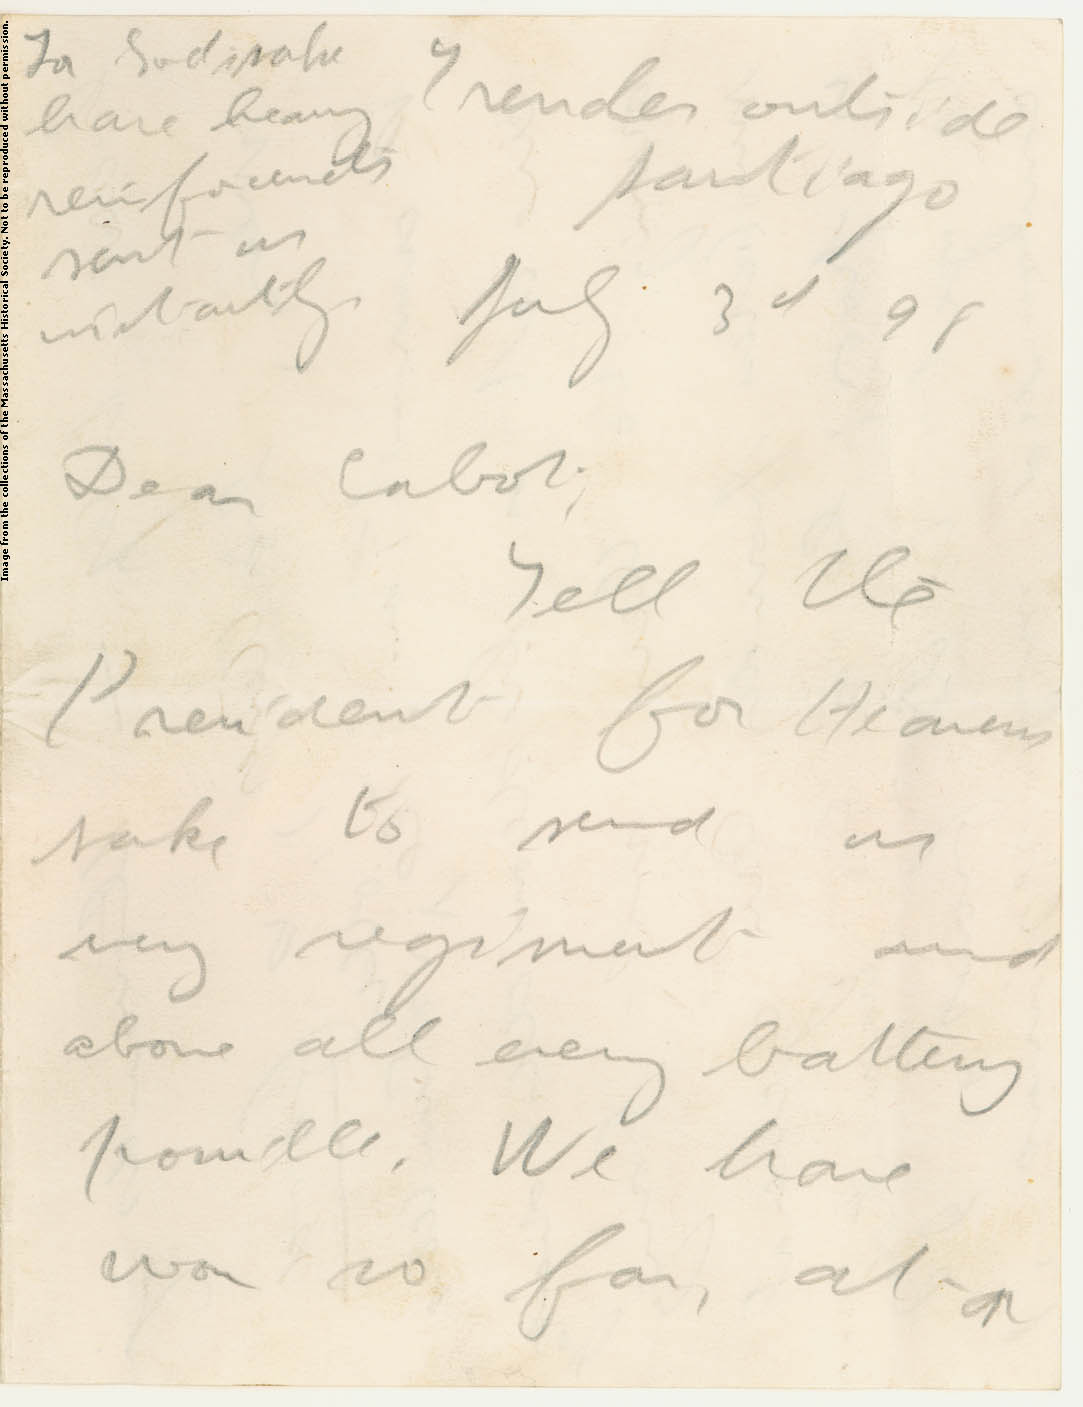 For Gods sake
have heavy
reinforcements
sent us
instantly
Trenches outside
Santiago
July 3d 98
Dear Cabot,
Tell the
President for Heavens
sake to send us
every regiment and
above all every battery
possible. We have
won so far, at a
Image from the collections of the Massachusetts Historical Society. Not to be reproduced without permission.